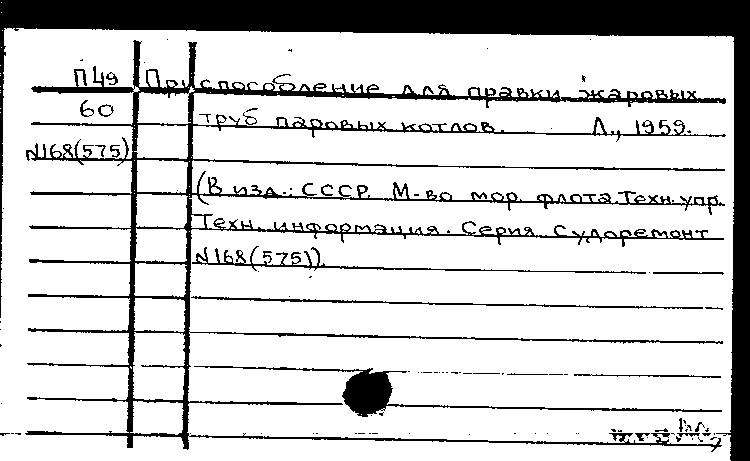 П49 Приспособление для правки жаровых
60 труб паровых котлов. Л., 1959.
N168(575)
(В изд.: СССР. М-во мор. флота. Техн. упр.
Техн. информация. Серия Судоремонт
N168(575)).